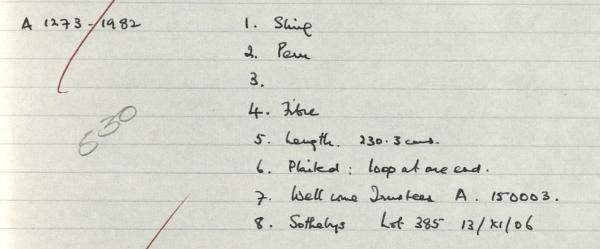 A 1273-1982 1. Sling
2. Peru
3.
4. Fibre
630
5. Length. 230.3 cms.
6. Plaited : loop at one end.
7. Wellcome Trustees A. 150003.
8. Sothebys Lot 385 13/XI/06